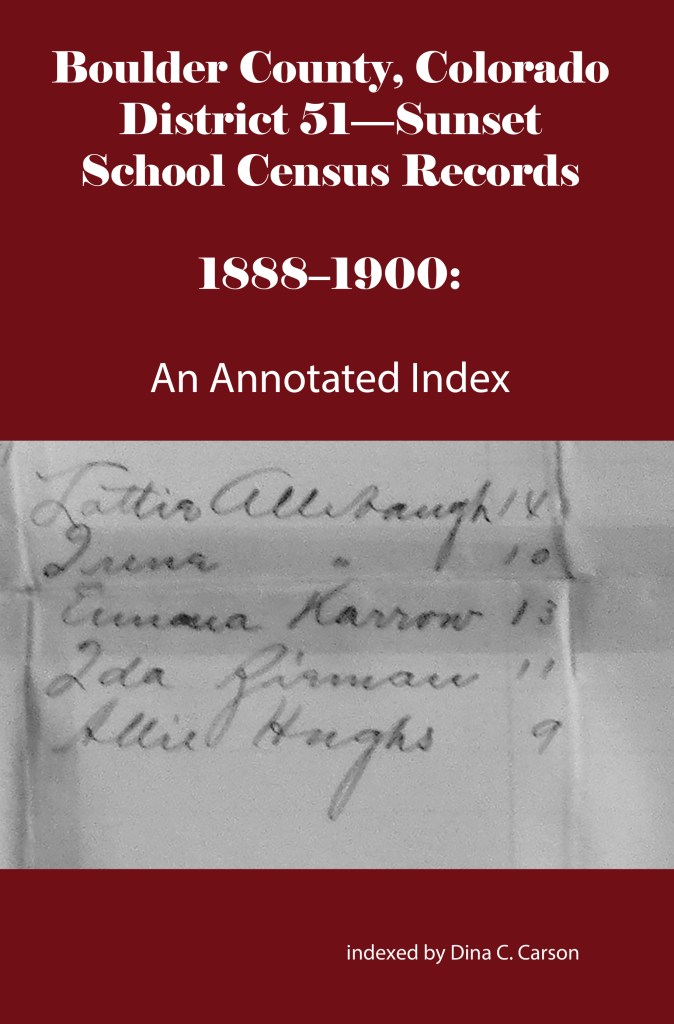 Boulder County, Colorado
District 51—Sunset
School Census Records
1888–1900:
An Annotated Index
Lottie Allebaugh 14
Irena " 10
Emma Harrow 13
Ida 11
Allie Hughs 9
indexed by Dina C. Carson